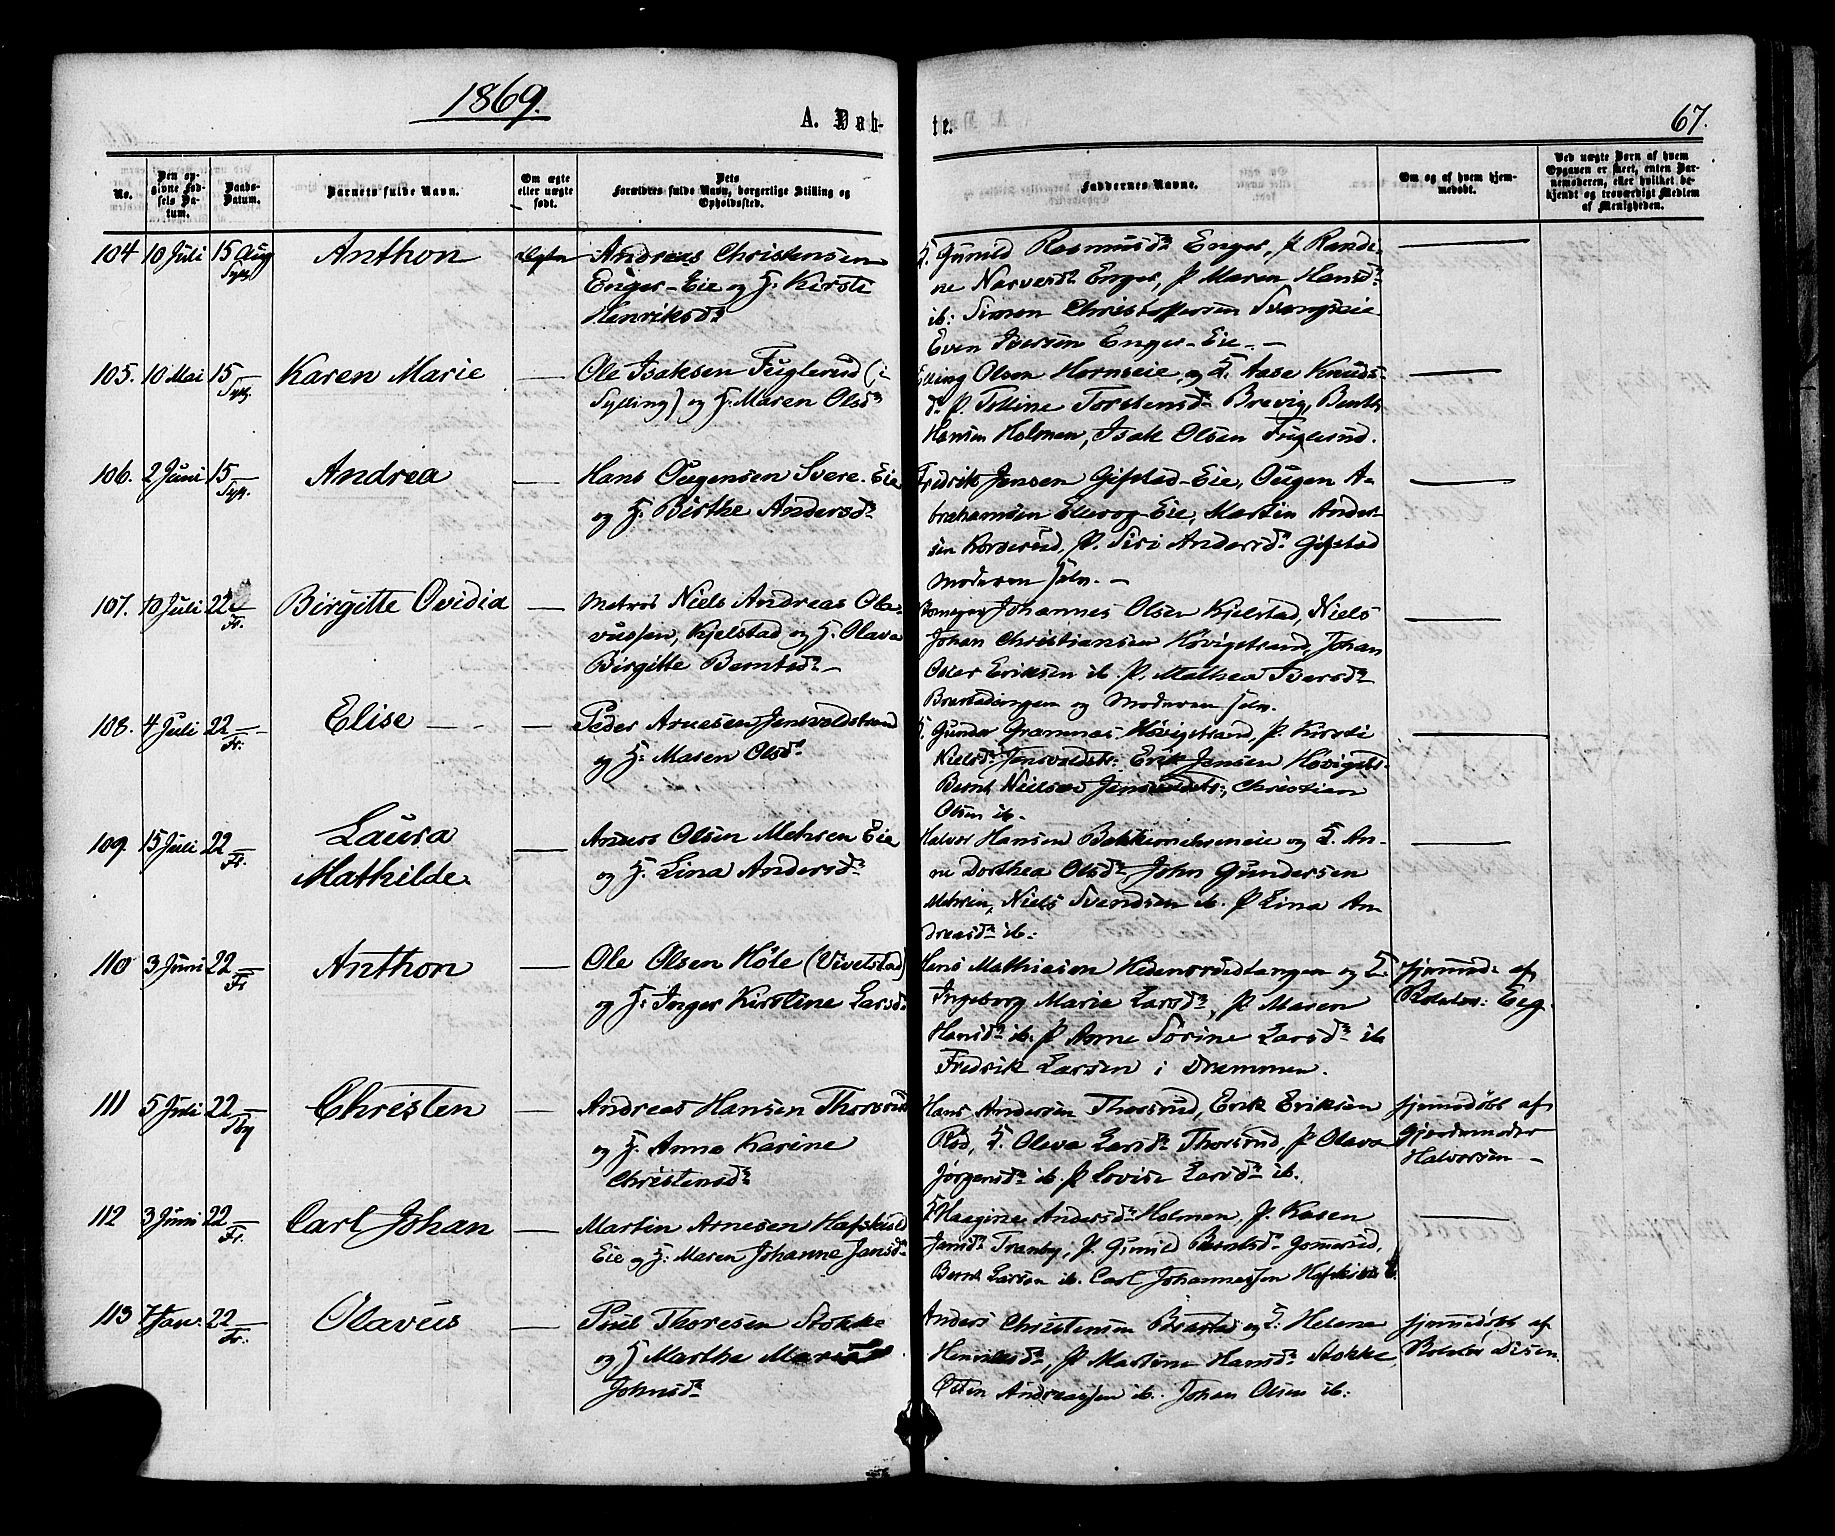 1869.
A. Døb-
te.
67.
No.
Den op-
givne Fød-
sels Da-
tum.
Daabs-
Datum.
Barnets fulde Navn.
Om ægte
eller uægte
født.
Dets
Forældres fulde Navn, borgerlige Stilling og
Opholdssted.
Faddernes Navne.
Om og af hvem hjem-
medøbt.
Ved uægte Børn af hvem
Opgaven er skeet, enten Bar-
nemoderen, eller hvilket be-
kjendt og troværdigt Medlem
af Menigheden.
104 10 Juli 15 Aug Sylg. Anthon Ægten Andreas Christensen
Enger-Eie og H. Kirsti
Henriksdr
K. Gunild Rasmusdr Enger, P. Rande-
ne Narvesdr Enger, P Maren Hansdr
ib: Simen Christoffersen Svangseie
Even Iversen Enger-Eie. -
105. 10 Mai 15 Sylg. Karen Marie — Ole Isaksen Fuglerud (i
Sylling) og H. Maren Olsdr
Elling Olsen Hornseie, og K. Aase Knuds-
dr P. Tolline Torstensdr Brevig, Bent
Hansen Holmen, Isak Olsen Fuglerud.
106. 2 Juni 15 Sylg. Andrea — Hans Ougensen Svere-Eie
og H. Birthe Andersdr
Fredrik Jensen Gifstad-Eie, Ougen A-
brahamsen Eie, Martin Ander-
sen P. Siri Andersdr Gifstad
Moderen selv. -
107. 10 Juli 22 Fr. Birgitte Ovidia — Matros Niels Andreas Ola-
vussen, Kjelstad og H. Olava
Birgitte Berntsdr -
Johannes Olsen Kjelstad, Niels
Johan Christiansen Høvigstrand, Johan
Eriksen ib. P. Mathea Iversdr
og Moderen selv.
108. 4 Juli 22 Fr. Elise — Peder Arnesen Jensvoldstrand
og H. Maren Olsdr
K. Gunder Høvigstrand, P. Kirsti
Nielsdr Jensvoldstr: Erik Jensen Høvigstr.
Bernt Nielsen Jensvoldstr:, Christian
Olsen ib.
109. 15 Juli 22 Fr. Laura
Mathilde. — Anders Olsen Mehren Eie
og H. Lina Andersdr
Halvor Hansen og K. An-
ne Dorthea Olsdr, John Gundersen
Mehren, Niels Svendsen ib. P Lina An-
dreasdr ib:
110 3 Juni 22 Fr Anthon — Ole Olsen Høle (Vivelstad)
og H. Inger Kirstine Larsdr
Hans Mathiesen og K.
Ingeborg Marie Larsdr, P Maren
Hansdr ib. P Anne Sørine Larsdr ib
Fredrik Larsen i Drammen.
hjemmed: af
Eeg.
111 5 Juli 22 Tby Christen — Andreas Hansen Thorsrud
og H. Anne Karine
Christensdr
Hans Andersen Thorsrud, Erik Eriksen
Rød, K. Oleva Larsdr Thorsrud, P Olava
Jørgensdr ib. P Lovise Larsdr ib.
hjemmedøbt af
Gjordemoder
Halvorsen -
112 3 Juni 22 Fr. Carl Johan — Martin Arnesen Hafskiold
Eie og H. Maren Johanne Jansdr
K Haagine Andersdr Holmen, P. Karen
Jansdr Tranby, P. Gunild Berntsdr Gomerud,
Bernt Larsen ib. Carl Johannessen
113 7 Jan. 22 Fr. Olavus — Poul Thoresen Stokke
og H Marthe Maria
Johnsdr
Anders Christensen Brastad og K. Helene
Henriksdr, P Martine Hansdr Stokke,
Otten Andreassen ib. Johan Olsen ib.
hjemmedøbt af
Disen